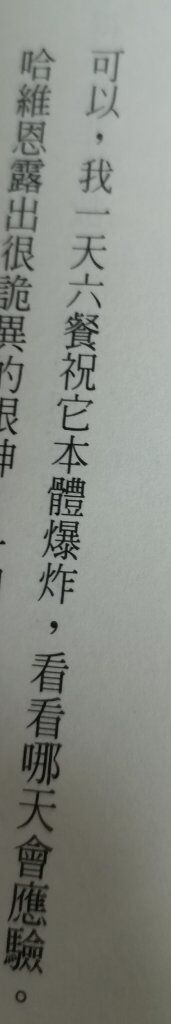 可以，我一天六餐祝它本體爆炸，看看哪天會應驗。
哈維恩露出很詭異的眼神